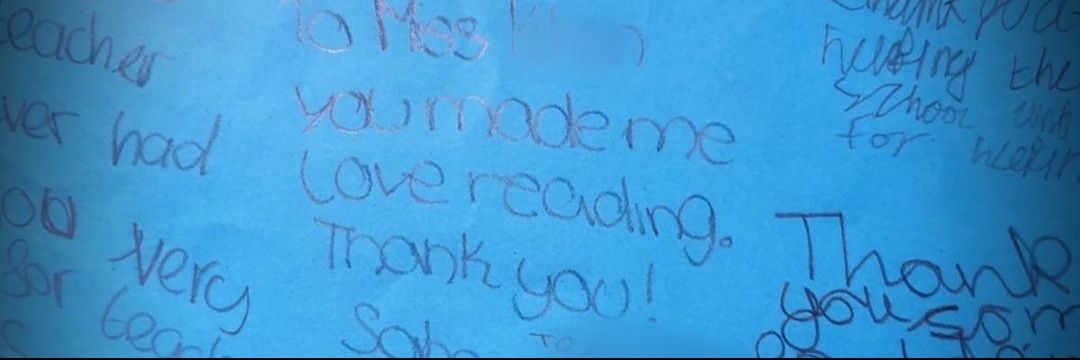 eacher
ver had
ou very
for teach
To Miss K
you made me
love reading.
Thank you!
To
thank you
helping the
school and
for
Thank
you so m